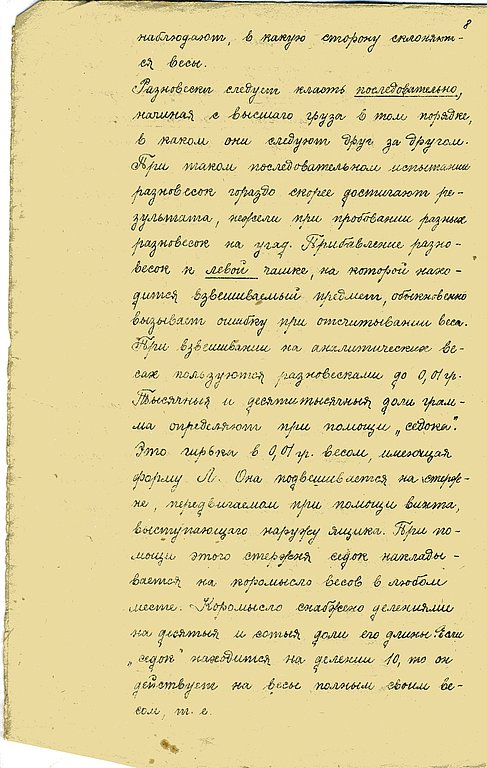 8
наблюдают, в какую сторону склоняют-
ся весы.
Разновески следует класть последовательно,
начиная с высшаго груза в том порядке,
в каком они следуют друг за другом.
При таком последовательном испытании
разновесок гораздо скорее достигают ре-
зультата, нежели при пробовании разных
разновесок на угад. Прибавление разно-
весок к левой чашке, на которой нахо-
дится взвешиваемый предмет, обыкновенно
вызывает ошибку при отсчитывании веса.
При взвешивании на аналитических ве-
сах пользуются разновесками до 0,01 гр.
Тысячныя и десятитысячныя доли грам-
ма определяют при помощи „седока".
Это гирька в 0,01 гр. весом, имеющая
форму Л. Она подвешивается на стерж-
не, передвигаемом при помощи винта,
выступающаго наружу ящика. При по-
мощи этого стержня седок наклады-
вается на коромысло весов в любом
месте. Коромысло снабжено делениями
на десятыя и сотыя доли его длины. Если
„седок" находится на делении 10, то он
действует на весы полным своим ве-
сом, т. е.